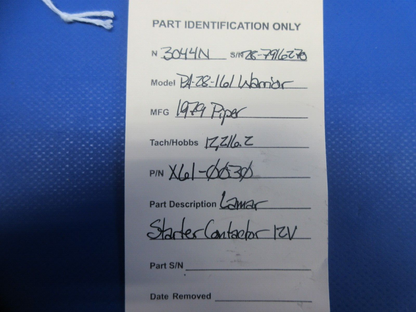 PART IDENTIFICATION ONLY
N 3044N S/N 28-7916270
Model PA-28-161 Warrior
MFG 1979 Piper
Tach/Hobbs 12,216.2
P/N X61-0030
Part Description Lamar
Starter Contactor 12V
Part S/N
Date Removed